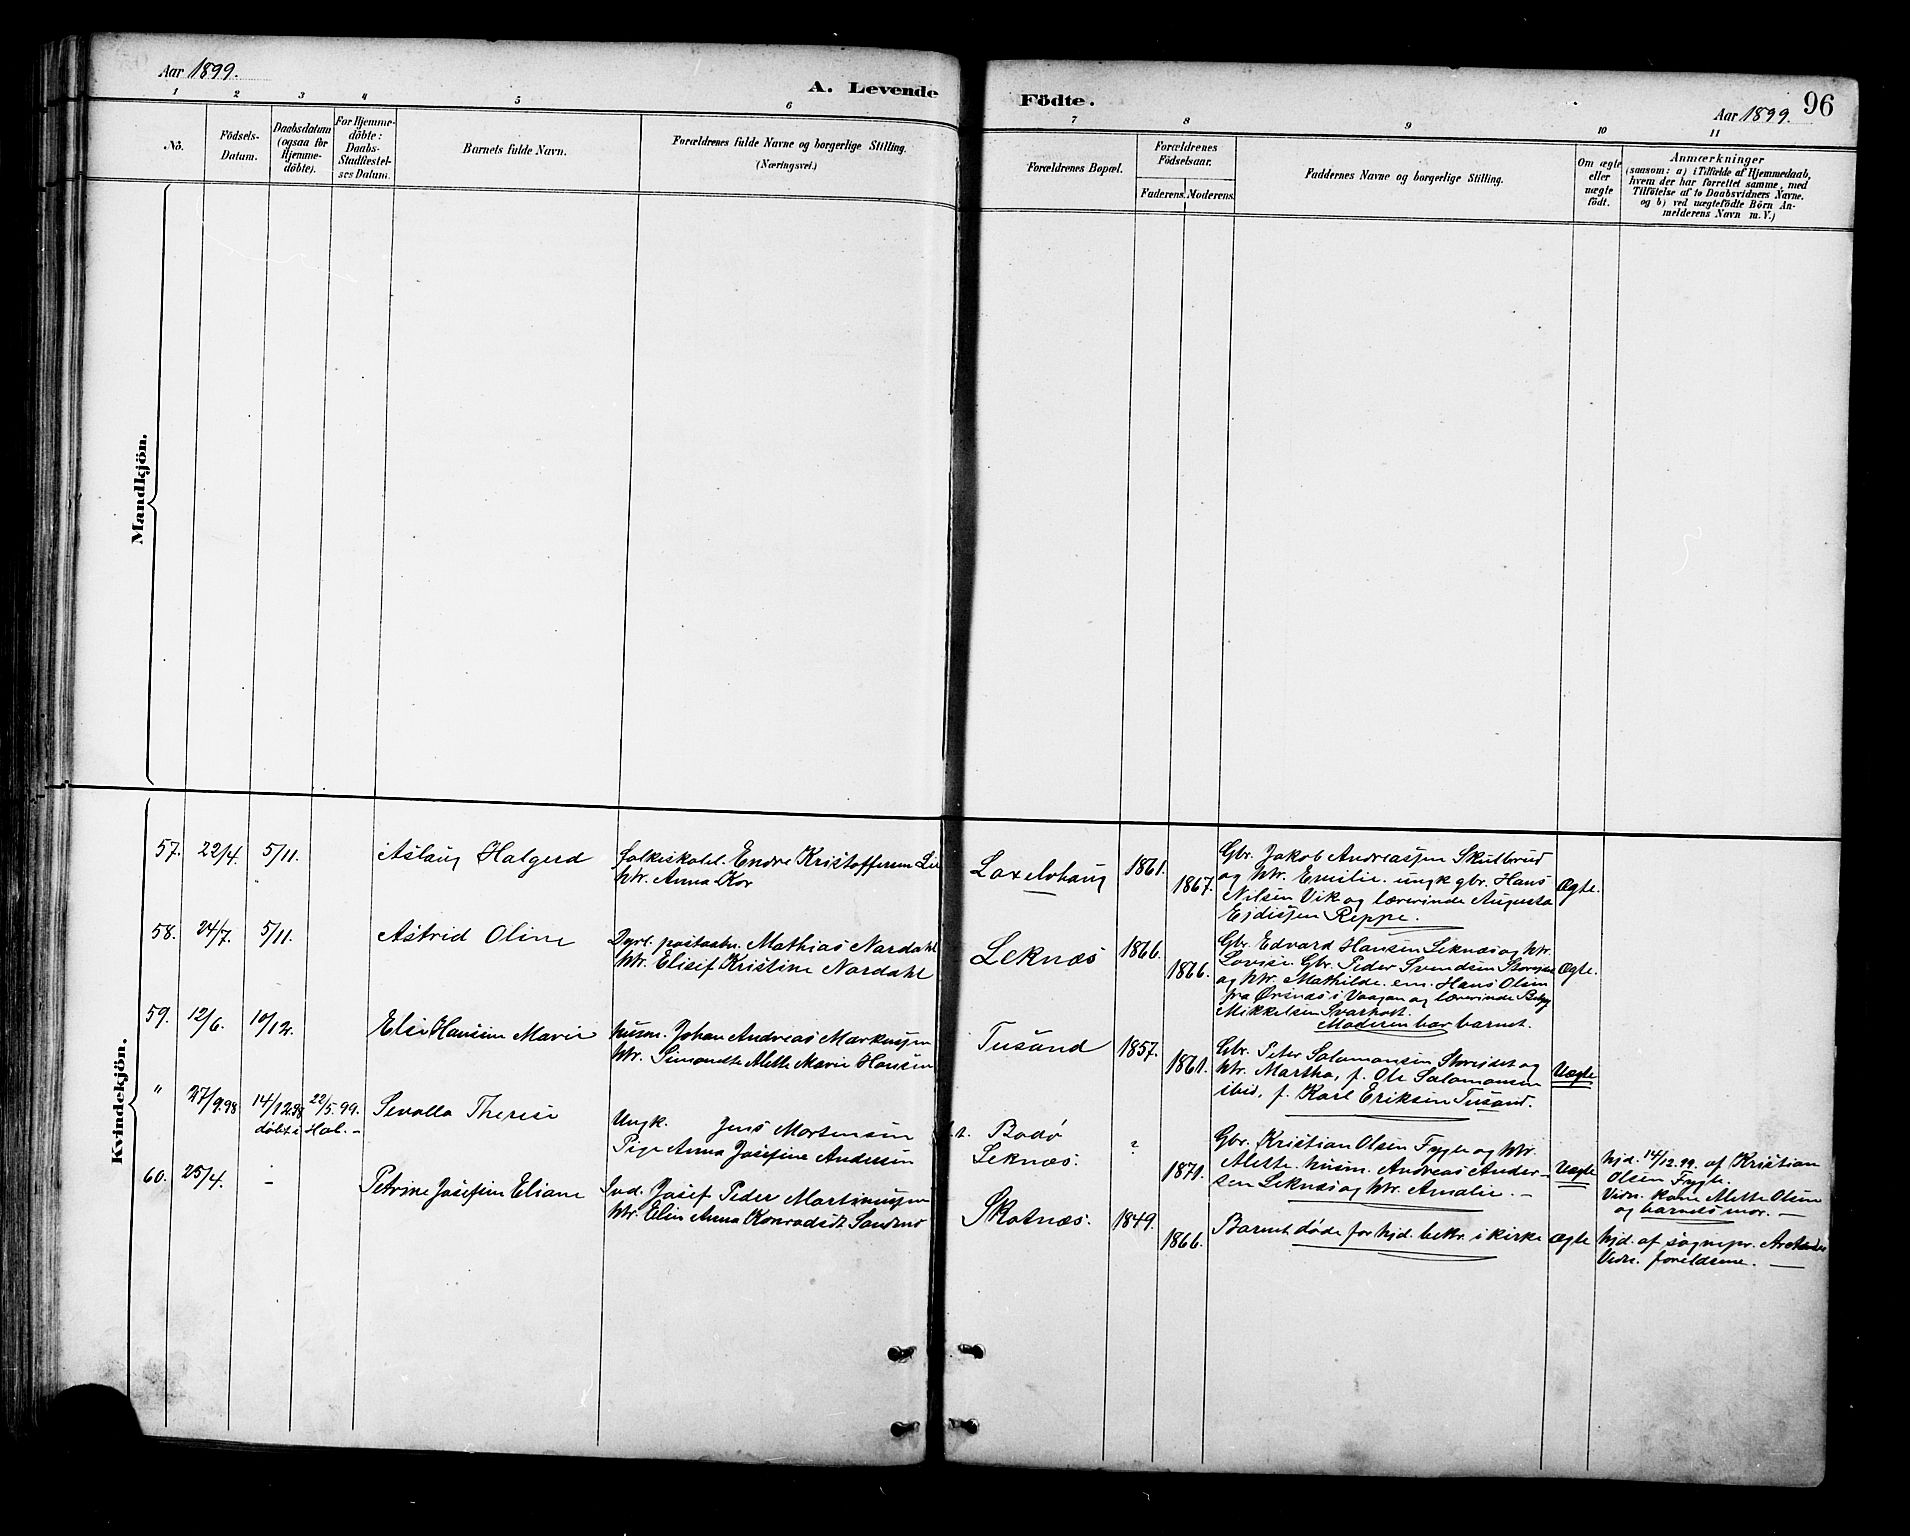 Aar 1899.
A. Levende
Födte.
Aar 1899.
96
1 2 3 4 5 6 7 8 9 10 11
No.
Födsels-
Datum.
Daabsdatum
(ogsaa for
Hjemme-
döbte).
For Hjemme-
döbte:
Daabs-
Stadfæstel-
ses Datum.
Barnets fulde Navn.
Forældrenes fulde Navne og borgerlige Stilling.
(Næringsvei.)
Forældrenes Bopæl.
Forældrenes
Födselsaar.
Faderens. Moderens.
Faddernes Navne og borgerlige Stilling.
Om ægte
eller
uægte
födt.
Anmærkninger
(saasom: a) i Tilfælde af Hjemmedaab,
hvem der har forrettet samme, med
Tilföielse af to Daabsvidners Navne,
og b) ved uægtefödte Börn An-
melderens Navn m. V.)
Mandkjön.
Kvindekjön.
57. 22/4. 5/11. Aslaug Halgerd
folkeskolel. Endre Kristoffersen Lie
htr. Anna Kor
Laxelvhaug 1861. 1867.
Gbr. Jakob Andreassen Skulbrud
og htr. Emilie. ungk gbr. Hans
Nilsen Vik og lærerinde Augusta
Ejdissen Reppe.
Ægte.
58. 24/7. 5/11. Astrid Oline
Dyrl. postaabn. Mathias Nordahl
htr. Elisif Kristine Nordahl
Leknæs 1866. 1866.
Gbr. Edvard Hansen Leknæs og htr.
Lovise. Gbr. Peder Svendsen
og htr. Mathilde. em. Hans Olsen
fra Ørsnæs i Vaagan og lærerinde
Mikkelsen Svarholt.
Moderen bar barnet.
Ægte.
59. 12/6. 10/12. Else Hansine Marie
husm. Johan Andreas Markussen
htr. Simondte Alette Marie Hansen
Tusand 1857. 1861.
Gbr. Peter Salamonsen Storejdet og
htr. Martha, f. Ole Salamonsen
ibid, f. Karl Eriksen Tusand.
Uægte
" 27/9.98 14/12.98 22/5.99. Sevalla Therese
døbt i Hol. –
Ungk. Jens Mortensen
Pige Anna Josefine Andersen
Bodø
Leknæs.
? 1871.
Gbr. Kristian Olsen Fygle og htr.
Alette. husm. Andreas Ander-
sen Leknæs og htr. Amalie. –
Uægte
hjd. 14/12.99. af Kristian
Olsen Fygle.
Vidn. kone Alette Olsen
og barnets mor. –
60. 25/4. – Petrine Josefine Eliane
Ind. Josef Peder Martinussen
htr. Elen Anna Konradsdt. Sandmo
Skotnæs. 1849. 1866.
Barnet døde før hjd. bekr. i kirke
Ægte
hjd. af sognepr.
Vidn. foreldrene. –